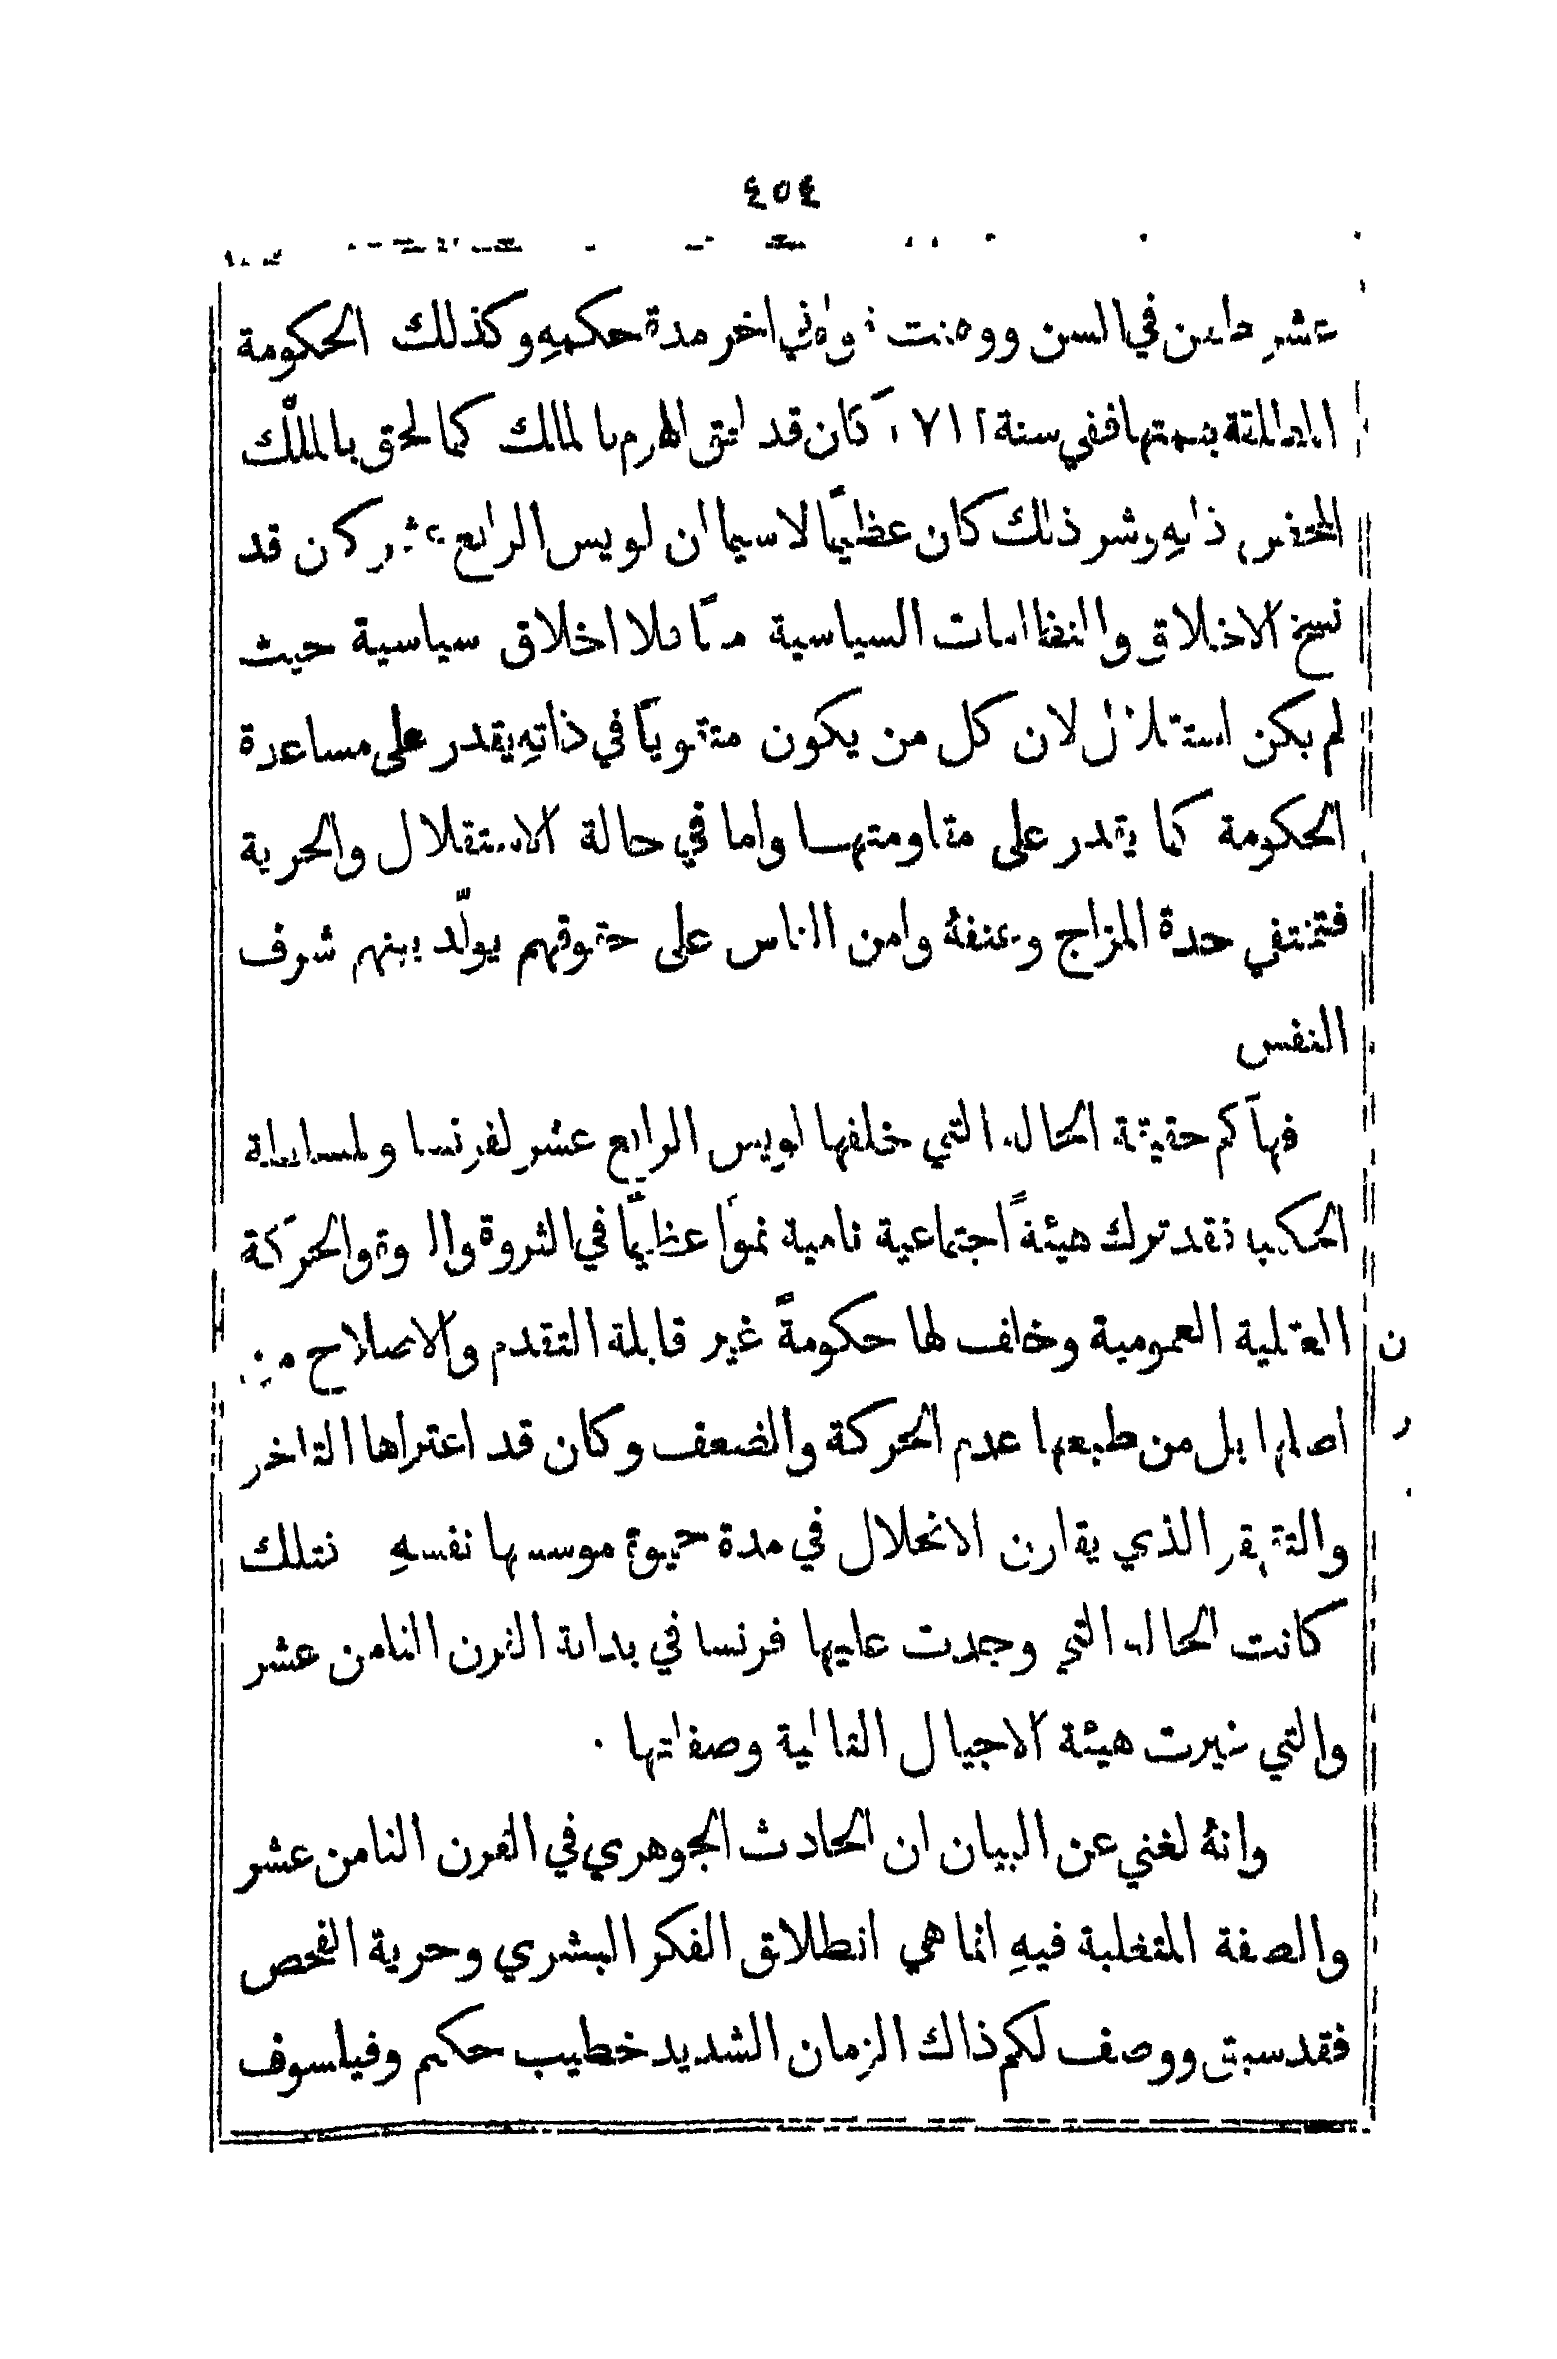 ٤٥٤
عشر طاعن في السن ووهنت قواه في اخر مدة حكمهِ وكذلك الحكومة
المطلقة برمتها ففي سنة ١٧١٢ كان قد لحق الهرم بالمالك كما لحق بالملك
ذاتهِ وشر ذلك كان عظيمًا لا سيما ان لويس الرابع عشر كان قد
نسخ الاخلاق والنظامات السياسية معًا فلا اخلاق سياسية حيث
لم يكن استقلال لان كل من يكون متقويًا في ذاتهِ يقدر على مساعدة
الحكومة كما يقدر على مقاومتها واما في حالة الاستقلال والحرية
فتنتفي حدة المزاج وعنفهُ وامن الناس على حقوقهم يولّد بينهم شرف
النفس
فهاكم حقيقة الحال التي خلفها لويس الرابع عشر لفرنسا ولسلطة
الحكم فقد ترك هيئةً اجتماعية نامية نموًا عظيمًا في الثروة والقوة والحركة
العقلية العمومية وخلف لها حكومةً غير قابلة التقدم والاصلاح من
اصلها بل من طبعها عدم الحركة والضعف وكان قد اعتراها التاخر
والتقهقر الذي يقارن الانحلال في مدة حيوة موسسها نفسهِ فتلك
كانت الحال التي وجدت عليها فرنسا في بداية القرن الثامن عشر
والتي غيرت هيئة الاجيال التالية وصفاتها ٠
وانهُ لغني عن البيان ان الحادث الجوهري في القرن الثامن عشر
والصفة المتغلبة فيهِ انما هي انطلاق الفكر البشري وحرية الفحص
فقد سبق ووصف لكم ذاك الزمان الشديد خطيب حكيم وفيلسوف